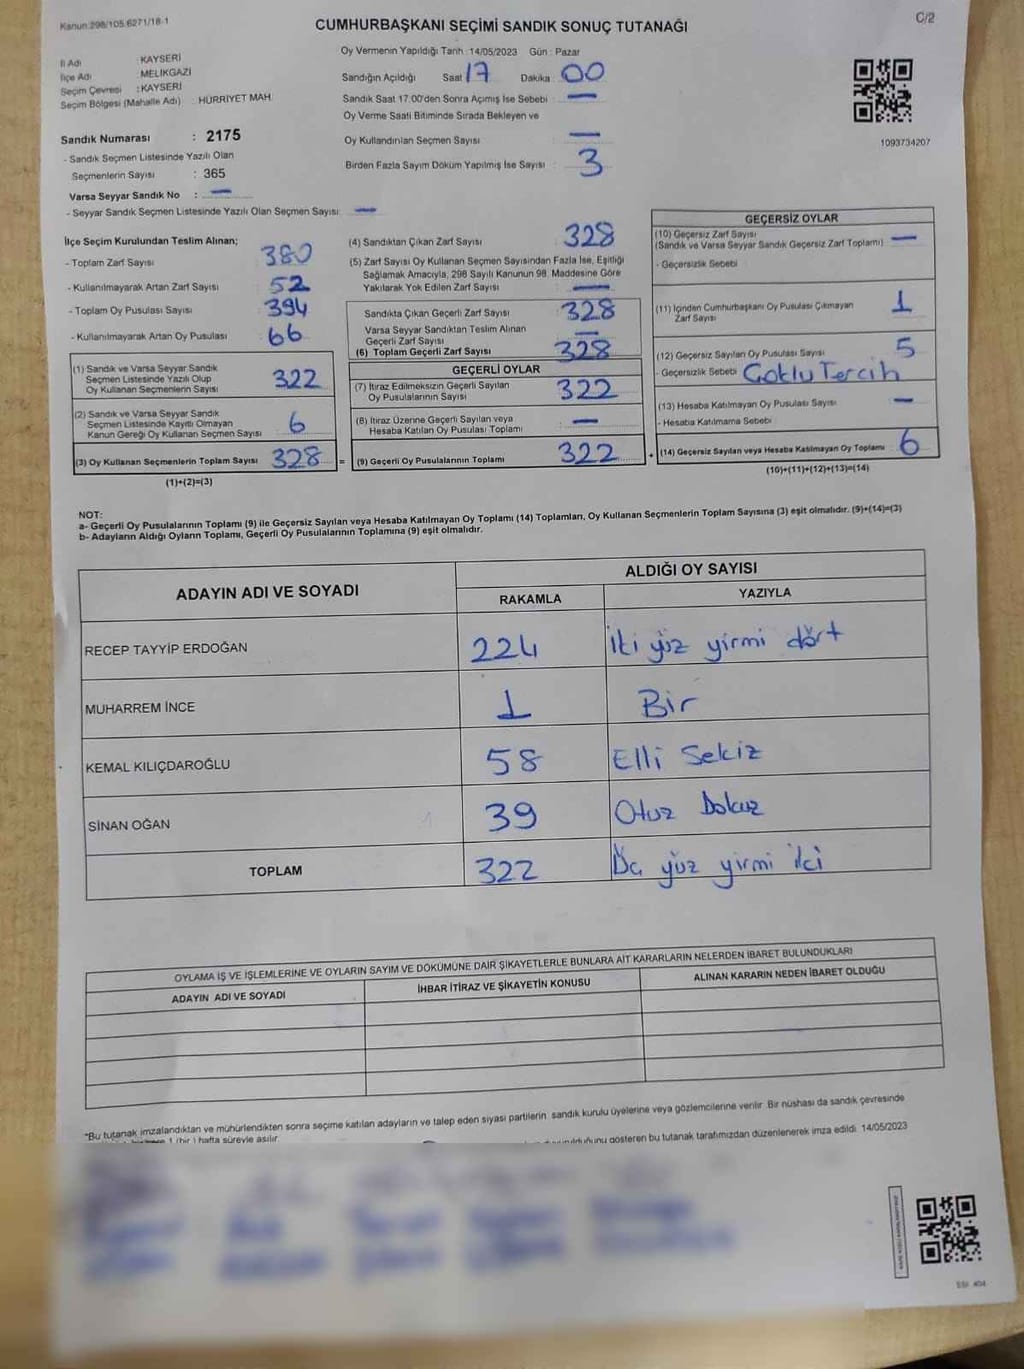 Kanun:298/105.6271/18-1
C/2
CUMHURBAŞKANI SEÇİMİ SANDIK SONUÇ TUTANAĞI
İl Adı : KAYSERİ
İlçe Adı : MELİKGAZİ
Seçim Çevresi : KAYSERİ
Seçim Bölgesi (Mahalle Adı) : HÜRRİYET MAH.
Sandık Numarası : 2175
- Sandık Seçmen Listesinde Yazılı Olan
Seçmenlerin Sayısı : 365
Varsa Seyyar Sandık No : —
- Seyyar Sandık Seçmen Listesinde Yazılı Olan Seçmen Sayısı —
Oy Vermenin Yapıldığı Tarih :14/05/2023 Gün : Pazar
Sandığın Açıldığı Saat 17 Dakika 00
Sandık Saat 17.00'den Sonra Açımış İse Sebebi : —
Oy Verme Saati Bitiminde Sırada Bekleyen ve
Oy Kullandırılan Seçmen Sayısı : —
Birden Fazla Sayım Döküm Yapılmış İse Sayısı : 3
1093734207
İlçe Seçim Kurulundan Teslim Alınan;
- Toplam Zarf Sayısı 380
- Kullanılmayarak Artan Zarf Sayısı 52
- Toplam Oy Pusulası Sayısı 394
- Kullanılmayarak Artan Oy Pusulası 66
(1) Sandık ve Varsa Seyyar Sandık
Seçmen Listesinde Yazılı Olup
Oy Kullanan Seçmenlerin Sayısı 322
(2) Sandık ve Varsa Seyyar Sandık
Seçmen Listesinde Kayıtlı Olmayan
Kanun Gereği Oy Kullanan Seçmen Sayısı 6
(3) Oy Kullanan Seçmenlerin Toplam Sayısı 328
(1)+(2)=(3)
(4) Sandıktan Çıkan Zarf Sayısı : 328
(5) Zarf Sayısı Oy Kullanan Seçmen Sayısından Fazla İse, Eşitliği
Sağlamak Amacıyla, 298 Sayılı Kanunun 98. Maddesine Göre
Yakılarak Yok Edilen Zarf Sayısı : —
Sandıkta Çıkan Geçerli Zarf Sayısı : 328
Varsa Seyyar Sandıktan Teslim Alınan
Geçerli Zarf Sayısı —
(6) Toplam Geçerli Zarf Sayısı 328
GEÇERLİ OYLAR
(7) İtiraz Edilmeksizin Geçerli Sayılan
Oy Pusulalarının Sayısı 322
(8) İtiraz Üzerine Geçerli Sayılan veya
Hesaba Katılan Oy Pusulası Toplamı —
= (9) Geçerli Oy Pusulalarının Toplamı 322
GEÇERSİZ OYLAR
(10) Geçersiz Zarf Sayısı
(Sandık ve Varsa Seyyar Sandık Geçersiz Zarf Toplamı) —
- Geçersizlik Sebebi
(11) İçinden Cumhurbaşkanı Oy Pusulası Çıkmayan
Zarf Sayısı 1
(12) Geçersiz Sayılan Oy Pusulası Sayısı 5
- Geçersizlik Sebebi Çoklu Tercih
(13) Hesaba Katılmayan Oy Pusulası Sayısı —
- Hesaba Katılmama Sebebi
+ (14) Geçersiz Sayılan veya Hesaba Katılmayan Oy Toplamı 6
(10)+(11)+(12)+(13)=(14)
NOT:
a- Geçerli Oy Pusulalarının Toplamı (9) ile Geçersiz Sayılan veya Hesaba Katılmayan Oy Toplamı (14) Toplamları, Oy Kullanan Seçmenlerin Toplam Sayısına (3) eşit olmalıdır. (9)+(14)=(3)
b- Adayların Aldığı Oyların Toplamı, Geçerli Oy Pusulalarının Toplamına (9) eşit olmalıdır.
ADAYIN ADI VE SOYADI
ALDIĞI OY SAYISI
RAKAMLA YAZIYLA
RECEP TAYYİP ERDOĞAN 224 İki yüz yirmi dört
MUHARREM İNCE 1 Bir
KEMAL KILIÇDAROĞLU 58 Elli Sekiz
SİNAN OĞAN 39 Otuz Dokuz
TOPLAM 322 Üç yüz yirmi iki
OYLAMA İŞ VE İŞLEMLERİNE VE OYLARIN SAYIM VE DÖKÜMÜNE DAİR ŞİKAYETLERLE BUNLARA AİT KARARLARIN NELERDEN İBARET BULUNDUKLARI
ADAYIN ADI VE SOYADI İHBAR İTİRAZ VE ŞİKAYETİN KONUSU ALINAN KARARIN NEDEN İBARET OLDUĞU
"Bu tutanak imzalandıktan ve mühürlendikten sonra seçime katılan adayların ve talep eden siyasi partilerin sandık kurulu üyelerine veya gözlemcilerine verilir. Bir nüshası da sandık çevresinde
1 (bir) hafta süreyle asılır.
gösteren bu tutanak tarafımızdan düzenlenerek imza edildi. 14/05/2023